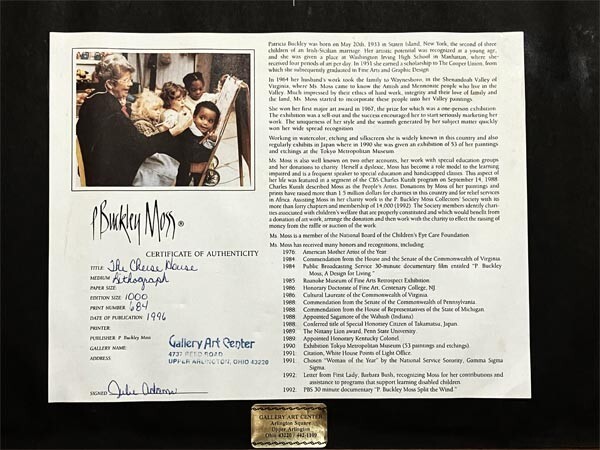 Patricia Buckley was born on May 20th, 1933 in Staten Island, New York, the second of three
children of an Irish-Sicilian marriage. Her artistic potential was recognized at a young age,
and she was given a place at Washington Irving High School in Manhattan, where she
received four periods of art per day. In 1951 she earned a scholarship to The Cooper Union, from
which she subsequently graduated in Fine Arts and Graphic Design.
In 1964 her husband's work took the family to Waynesboro, in the Shenandoah Valley of
Virginia, where Ms. Moss came to know the Amish and Mennonite people who live in the
Valley. Much impressed by their ethics of hard work, integrity and their love of family and
the land, Ms. Moss started to incorporate these people into her Valley paintings.
She won her first major art award in 1967, the prize for which was a one-person exhibition.
The exhibition was a sell-out and the success encouraged her to start seriously marketing her
work. The uniqueness of her style and the warmth generated by her subject matter quickly
won her wide spread recognition.
Working in watercolor, etching and silkscreen she is widely known in this country and also
regularly exhibits in Japan where in 1990 she was given an exhibition of 53 of her paintings
and etchings at the Tokyo Metropolitan Museum.
Ms. Moss is also well known on two other accounts, her work with special education groups
and her donations to charity. Herself a dyslexic, Moss has become a role model to the learning
impaired and is a frequent speaker to special education and handicapped classes. This aspect of
her life was featured in a segment of the CBS Charles Kuralt program on September 14, 1988.
Charles Kuralt described Moss as the People's Artist. Donations by Moss of her paintings and
prints have raised more than 1.5 million dollars for charities in this country and for relief services
in Africa. Assisting Moss in her charity work is the P. Buckley Moss Collectors' Society with its
more than forty chapters and membership of 14,000 (1992). The Society members identify charities
associated with children's welfare that are properly constituted and which would benefit from
a donation of art work, arrange the donation and then work with the charity to effect the raising of
money from the raffle or auction of the work.
Ms. Moss is a member of the National Board of the Children's Eye Care Foundation.
Ms. Moss has received many honors and recognitions, including
1976: American Mother Artist of the Year
1984: Commendation from the House and the Senate of the Commonwealth of Virginia.
1984: Public Broadcasting Service 30-minute documentary film entitled "P. Buckley
Moss, A Design for Living."
1985: Roanoke Museum of Fine Arts Retrospect Exhibition
1986: Honorary Doctorate of Fine Art, Centenary College, NJ
1986: Cultural Laureate of the Commonwealth of Virginia
1988: Commendation from the Senate of the Commonwealth of Pennsylvania.
1988: Commendation from the House of Representatives of the State of Michigan.
1988: Appointed Sagamore of the Wabash (Indiana)
1988: Conferred title of Special Honorary Citizen of Takamatsu, Japan.
1989: The Nittany Lion award, Penn State University.
1989: Appointed Honorary Kentucky Colonel
1990: Exhibition Tokyo Metropolitan Museum (53 paintings and etchings).
1991: Citation, White House Points of Light Office
1991: Chosen "Woman of the Year" by the National Service Sorority, Gamma Sigma
Sigma.
1992: Letter from First Lady, Barbara Bush, recognizing Moss for her contributions and
assistance to programs that support learning disabled children.
1992: PBS 30 minute documentary "P. Buckley Moss Split the Wind."
P Buckley Moss ®
CERTIFICATE OF AUTHENTICITY
TITLE The Cheese House
MEDIUM Lithograph
PAPER SIZE
EDITION SIZE 1000
PRINT NUMBER 684
DATE OF PUBLICATION 1996
PRINTER:
PUBLISHER P. Buckley Moss
GALLERY NAME
ADDRESS
Gallery Art Center
4737 REED ROAD
UPPER ARLINGTON, OHIO 43220
SIGNED Julie Adams
GALLERY ART CENTER
Arlington Square
Upper Arlington
Ohio 43220 / 442-1109